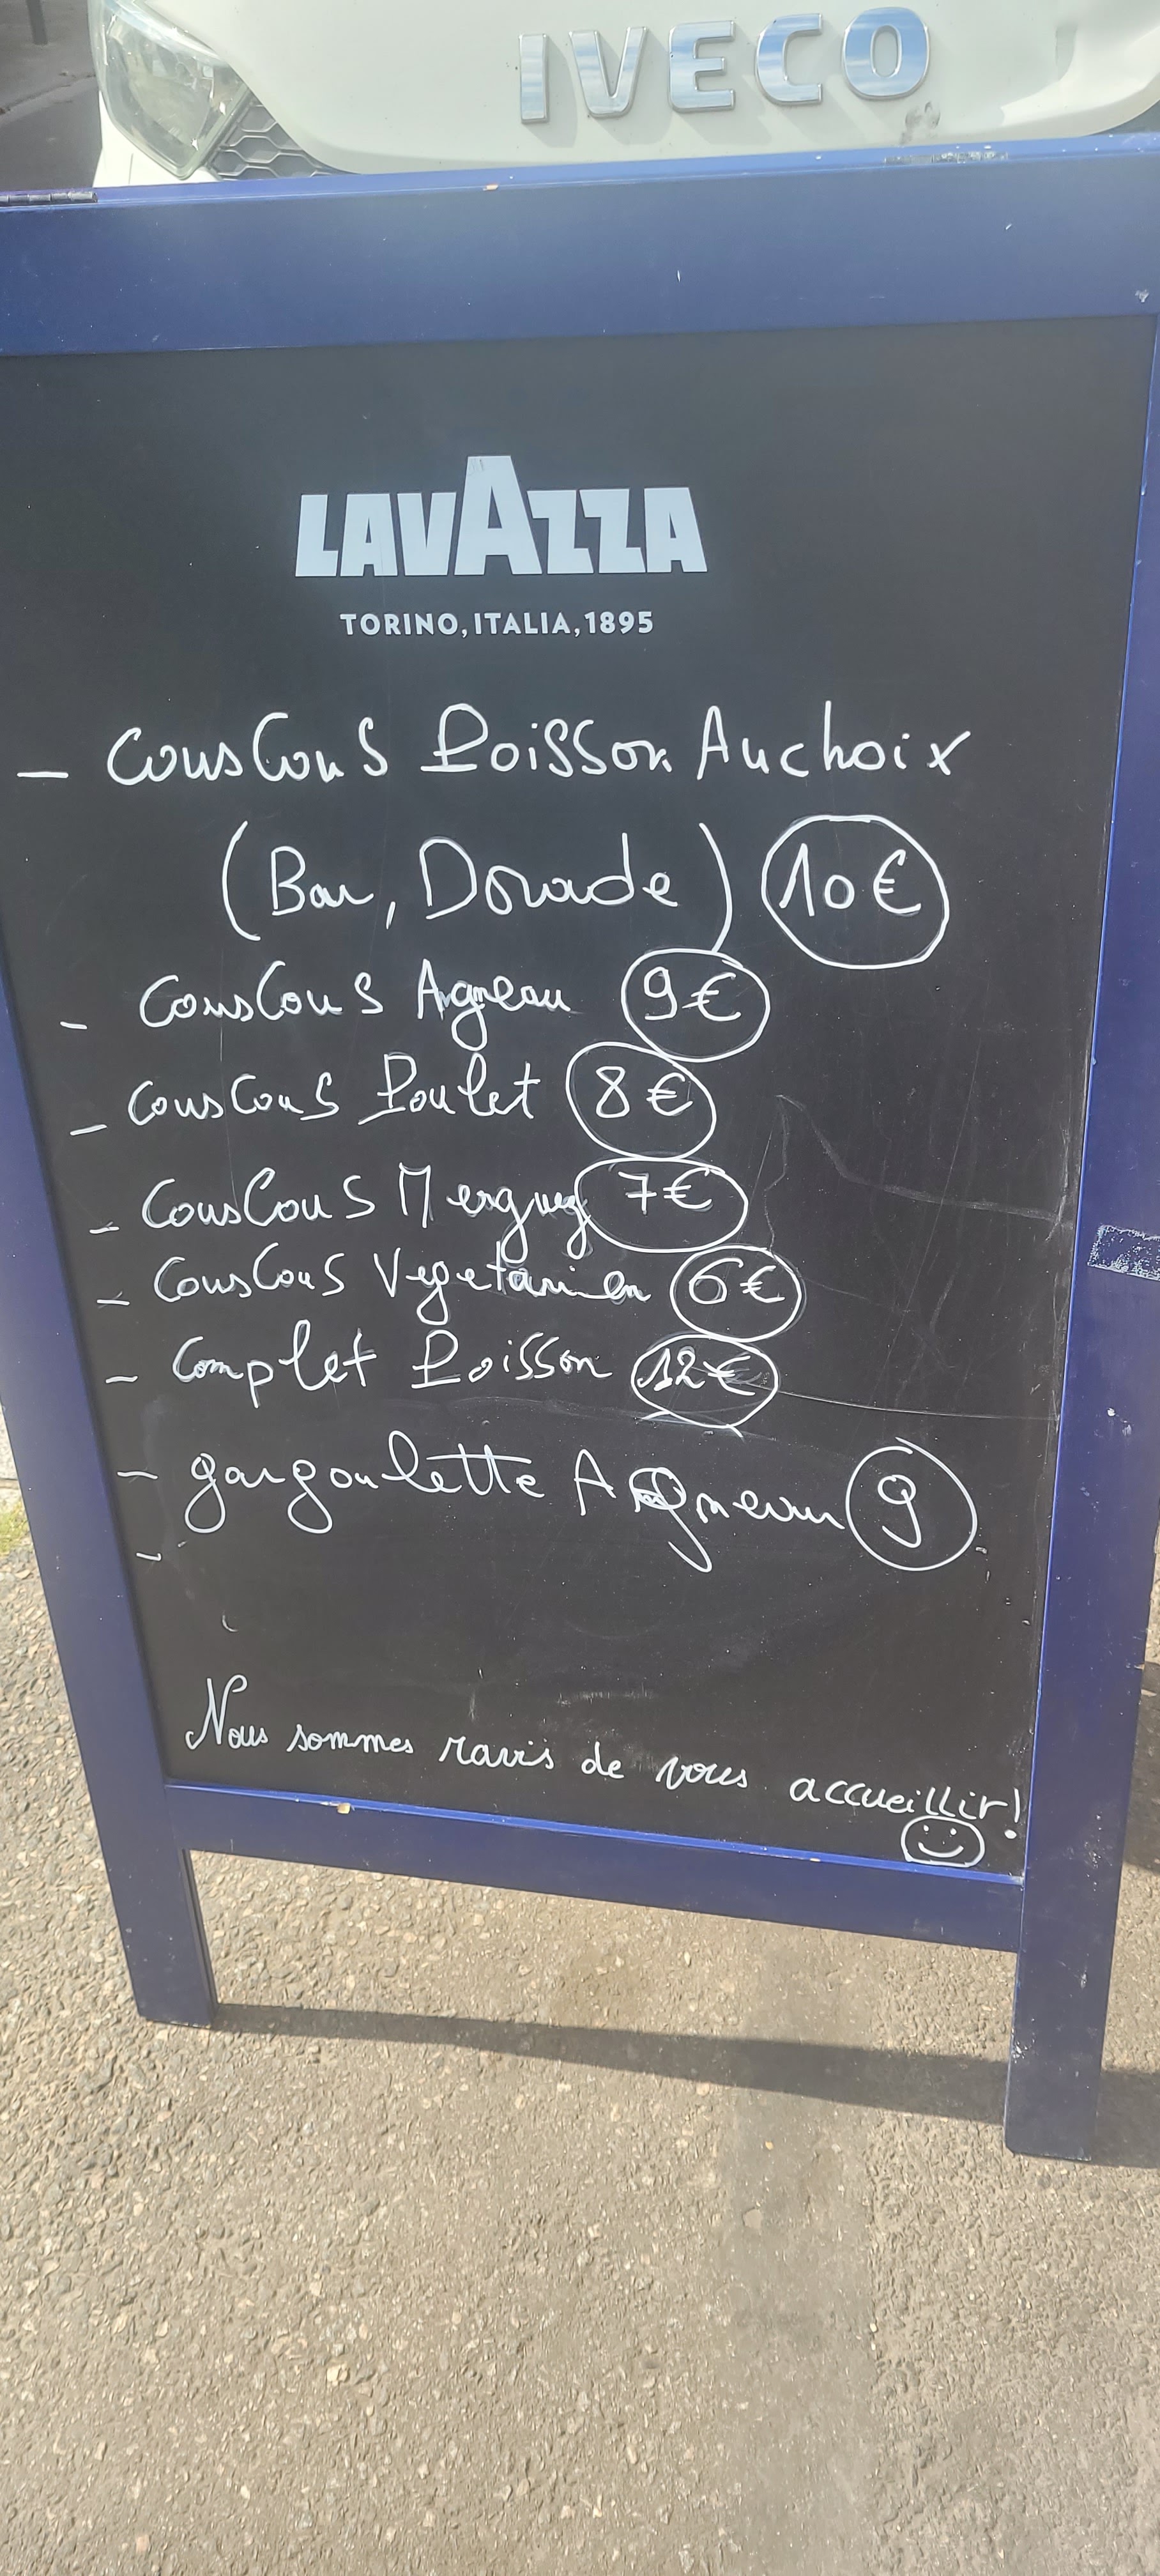 IVECO
LAVAZZA
TORINO, ITALIA, 1895
- CousCouS Poisson Au choix
(Bar, Dorade) 10€
- CousCouS Agneau 9€
- CousCouS Poulet 8€
- CousCouS Merguez 7€
- CousCouS Vegetarien 6€
- Complet Poisson 12€
- gargoulette Agneau 9
-
Nous sommes ravis de vous accueillir!